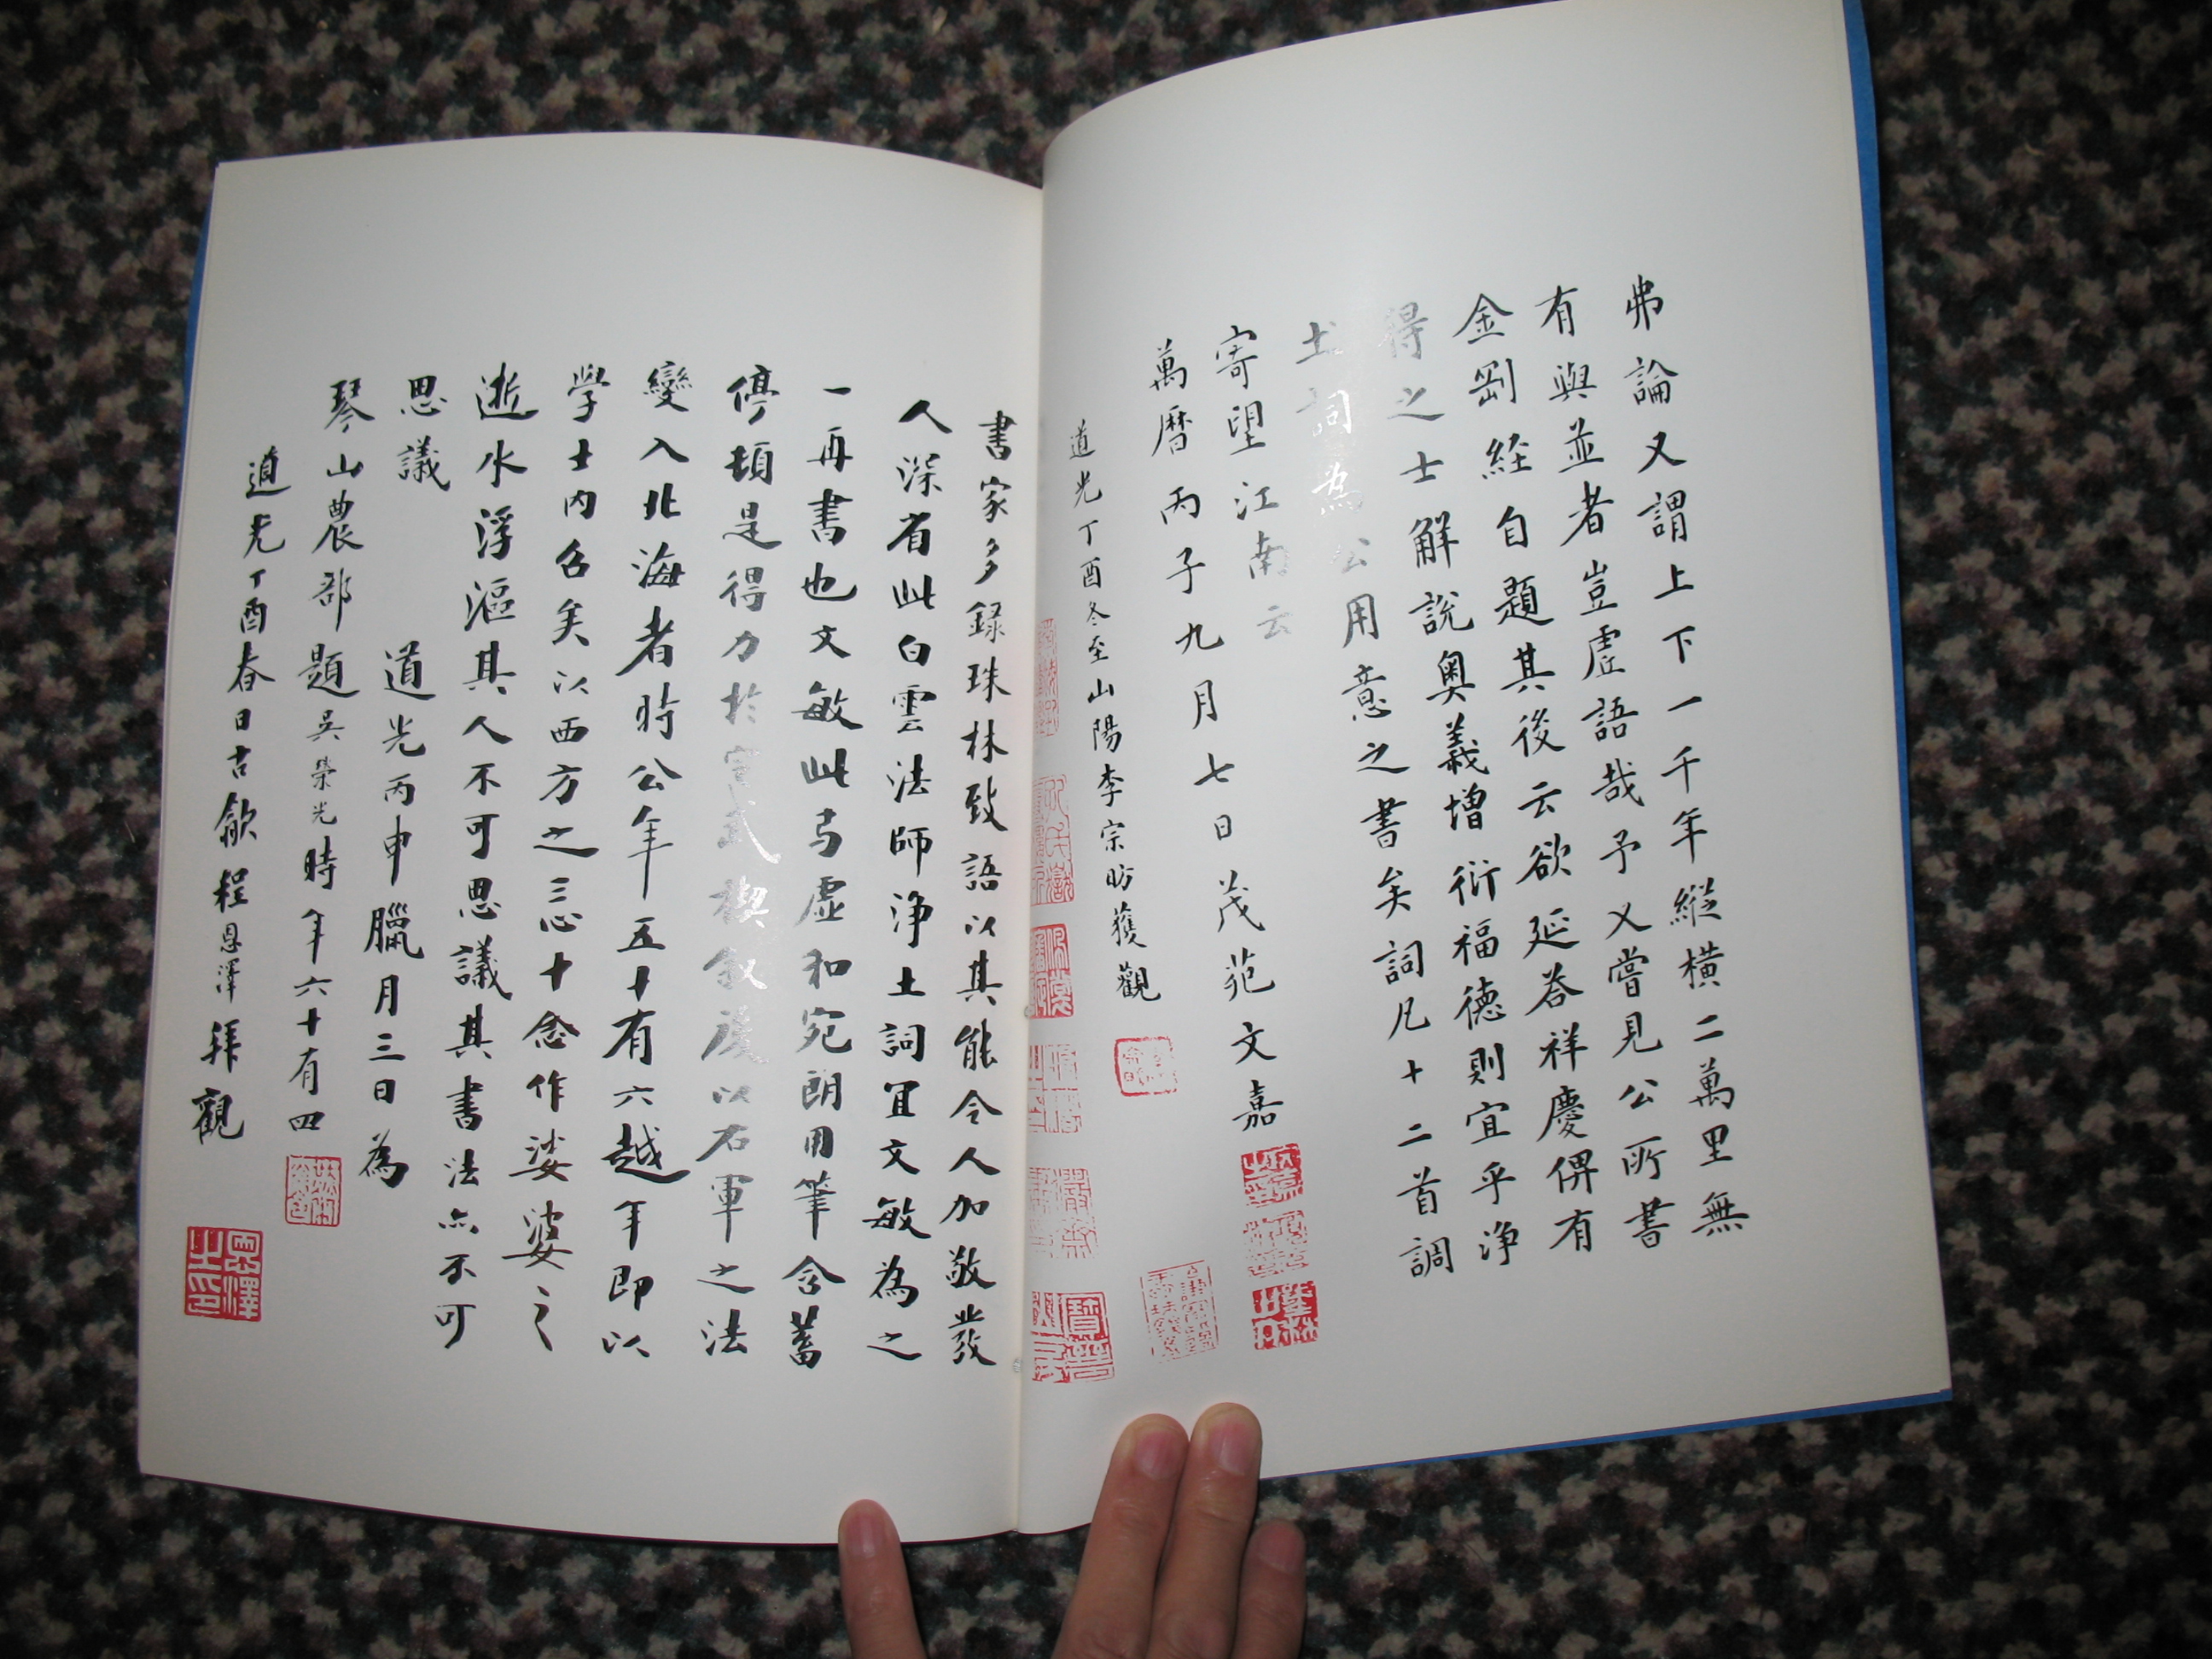 弗論又謂上下一千年縱橫二萬里無
有與並者豈虛語哉予又嘗見公所書
金剛經自題其後云欲延吞祥慶俾有
得之士解說奧義增衍福德則宜乎淨
土詞為公用意之書矣詞凡十二首調
寄望江南云
萬曆丙子九月七日茂苑文嘉
道光丁酉冬至山陽李宗昉獲觀
書家多錄珠林致語以其能令人加敬發
人深省此白雲法師淨土詞宜文敏為之
一再書也文敏此與虛和宛朗用筆含蓄
停頓是得力於定武禊敘後以右軍之法
變入北海者時公年五十有六越年即以
學士內召矣以西方之忌十念作娑婆之
逝水浮漚其人不可思議其書法亦不可
思議
道光丙申臘月三日為
琴山農部題吳榮光時年六十有四
道光丁酉春日古歙程恩澤拜觀
恩澤之印